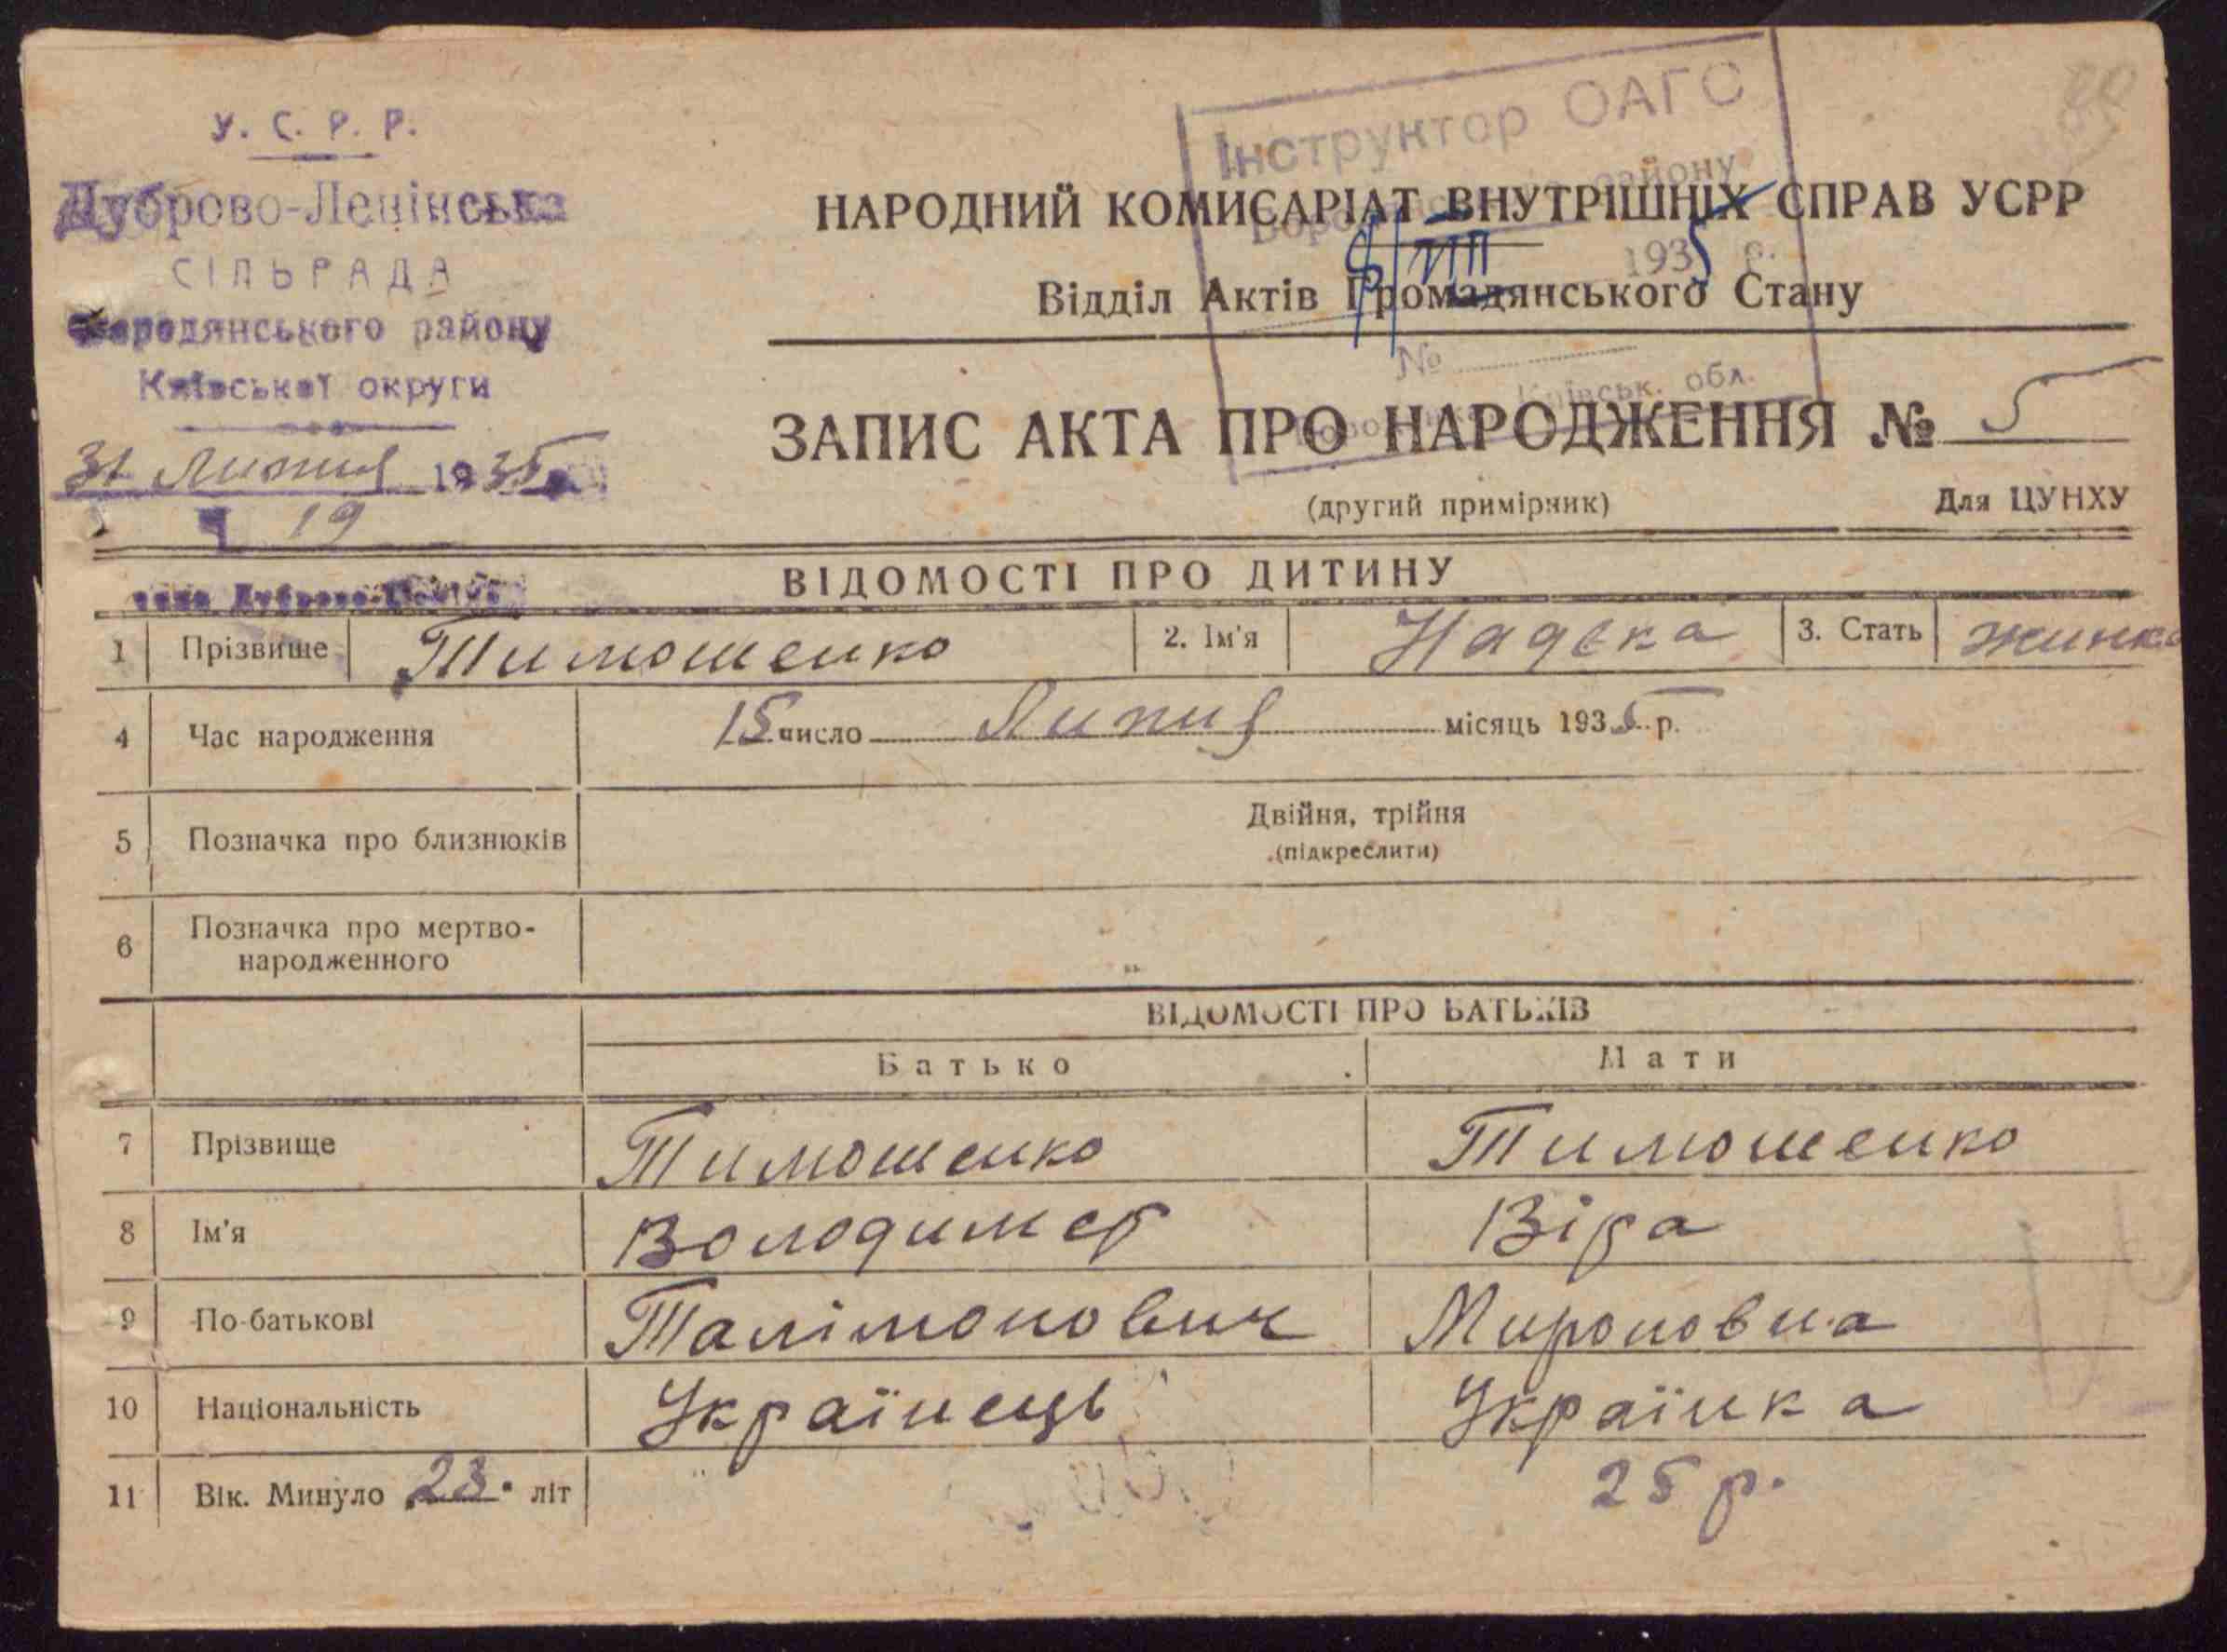 У. С. Р. Р.
Дуброво-Ленінська
СІЛЬРАДА
Бородянського району
Київської округи
31 Липня 1935
Ч 19
Інструктор ОАГС
району
8/VIII 1935 р.
№
Київськ. обл.
НАРОДНИЙ КОМИСАРІАТ ВНУТРІШНІХ СПРАВ УСРР
Відділ Актів Громадянського Стану
ЗАПИС АКТА ПРО НАРОДЖЕННЯ № 5
(другий примірник) Для ЦУНХУ
ВІДОМОСТІ ПРО ДИТИНУ
1 Прізвище Тимошенко 2. Ім'я Надєка 3. Стать жинка
4 Час народження 15 число Липня місяць 1935 р.
5 Позначка про близнюків Двійня, трійня
(підкреслити)
6 Позначка про мертво-
народженного
ВІДОМОСТІ ПРО БАТЬКІВ
Батько Мати
7 Прізвище Тимошенко Тимошенко
8 Ім'я Володимер Віра
9 По-батькові Талімонович Мироновна
10 Національність Українець Українка
11 Вік. Минуло 23. літ 25 р.